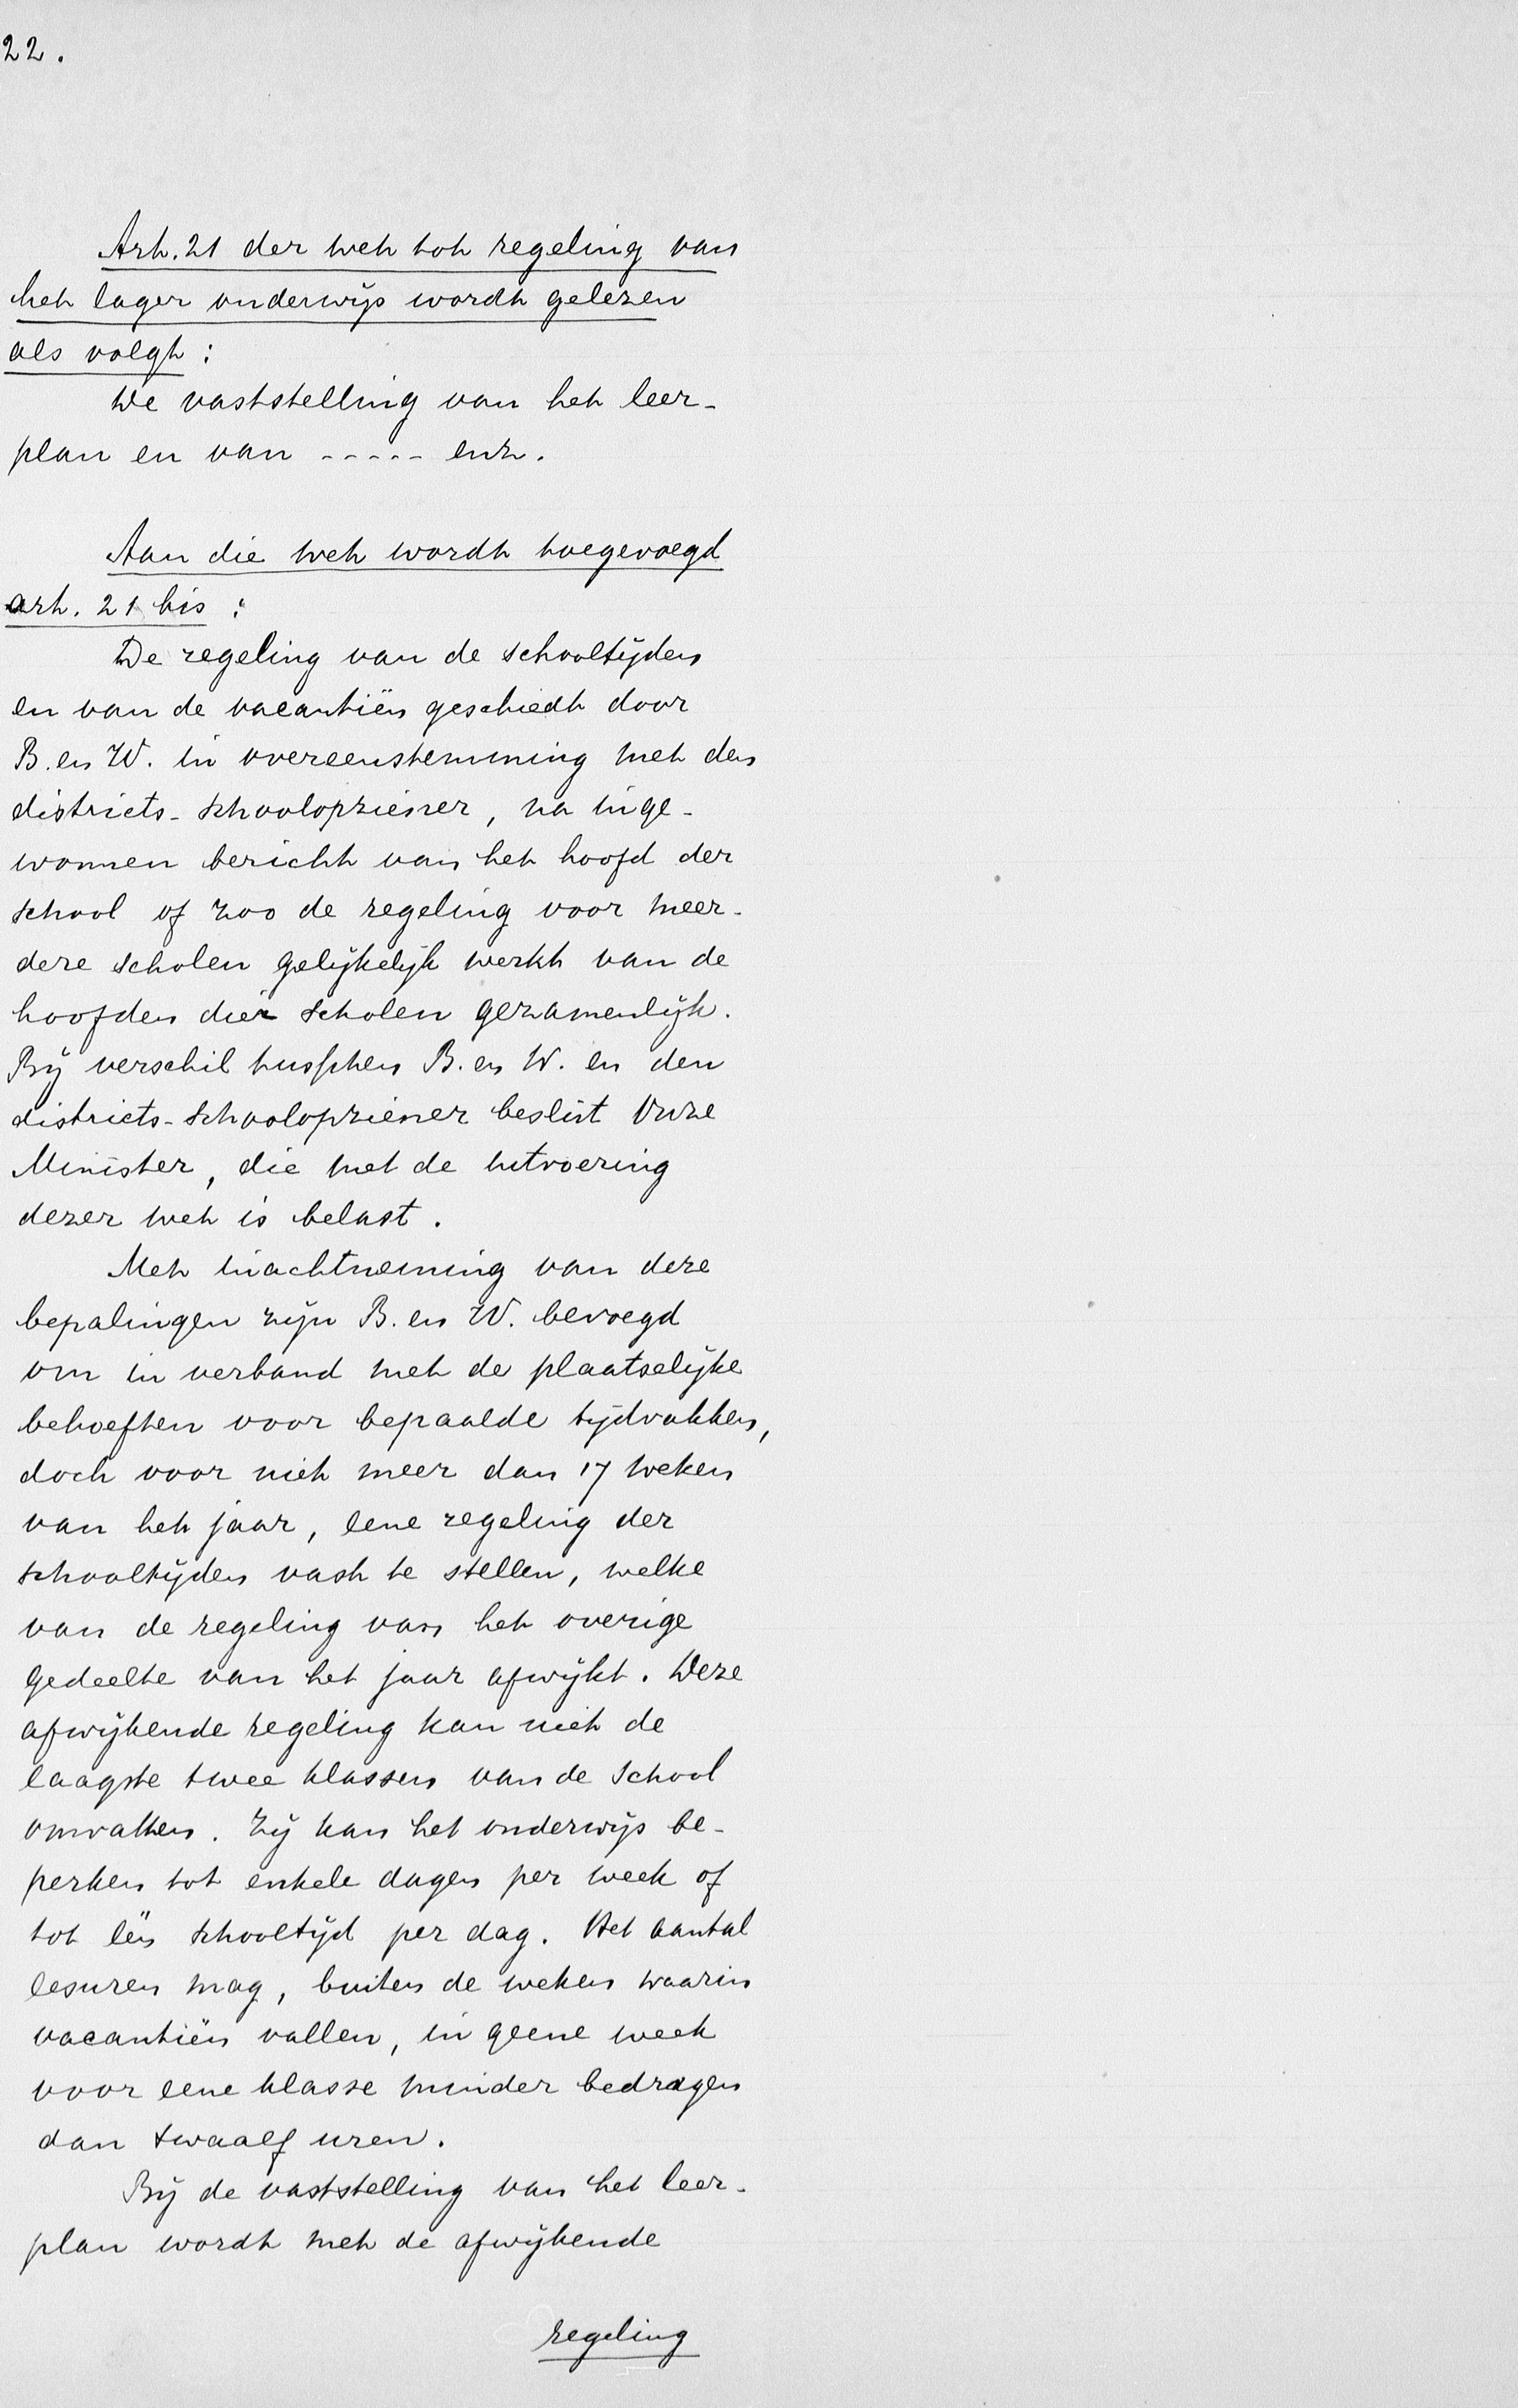 22.
Art. 21 der wet tot regeling van
het lager onderwijs wordt gelezen
als volgt:
De vaststelling van het leer-
plan en van ----- enz.
Aan die wet wordt toegevoegd
art. 21 bis:
De regeling van de schooltijden
en van de vacantiën geschiedt door
B. en W. in overeenstemming met den
districts-schoolopziener, na inge-
wonnen bericht van het hoofd der
school of zoo de regeling voor meer-
dere scholen gelijkelijk werkt van de
hoofden dier scholen gezamenlijk.
Bij verschil tusschen B. en W. en den
districts-schoolopziener beslist Onze
Minister, die met de uitvoering
dezer wet is belast.
Met inachtneming van deze
bepalingen zijn B. en W. bevoegd
om in verband met de plaatselijke
behoeften voor bepaalde tijdvakken,
doch voor niet meer dan 17 weken
van het jaar, eene regeling der
schooltijden vast te stellen, welke
van de regeling van het overige
gedeelte van het jaar afwijkt. Deze
afwijkende regeling kan niet de
laagste twee klassen van de school
omvatten. Zij kan het onderwijs be-
perken tot enkele dagen per week of
tot één schooltijd per dag. Het aantal
lesuren mag, buiten de weken waarin
vacantiën vallen, in geene week
voor eene klasse minder bedragen
dan twaalf uren.
Bij de vaststelling van het leer-
plan wordt met de afwijkende
regeling